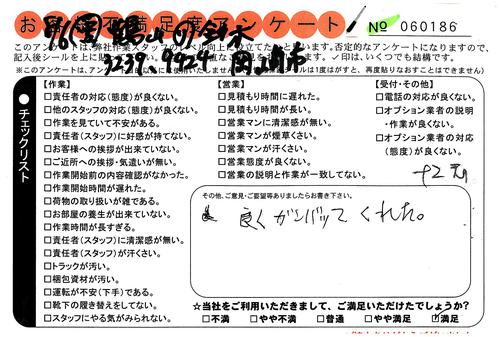 お客様不満足度アンケート
№ 060186
このアンケートは、弊社作業スタッフのレベル向上に役立てたいと思います。否定的なアンケートになりますので、
記入後シールを上に
印は、いくつでも結構です。
【作業】
□責任者の対応(態度)が良くない。
□他のスタッフの対応(態度)が良くない。
□作業を見ていて不安がある。
□責任者(スタッフ)に好感が持てない。
□お客様への挨拶が出来ていない。
□ご近所への挨拶・気遣いが無い。
□作業開始前の内容確認がなかった。
□作業開始時間が遅れた。
□荷物の取り扱いが雑である。
□お部屋の養生が出来ていない。
□作業時間が長すぎる。
□責任者(スタッフ)に清潔感が無い。
□責任者(スタッフ)が汗くさい。
□トラックが汚い。
□梱包資材が汚い。
□運転が不安(下手)である。
□靴下の履き替えをしてない。
□スタッフにやる気がみられない。
【営業】
□見積もり時間に遅れた。
□見積もり時間が長い。
□営業マンに清潔感が無い。
□営業マンが煙草くさい。
□営業マンが汗くさい。
□営業態度が良くない。
□営業の説明と作業が一致してない。
【受付・その他】
□電話の対応が良くない。
□オプション業者の説明
・作業が良くない。
□オプション業者の対応
(態度)が良くない。
●チェックリスト
その他、ご意見・ご要望等ありましたらお書き下さい。
良くガンバッてくれた。
☆当社をご利用いただきまして、ご満足いただけたでしょうか?
□不満 □やや不満 □普通 □やや満足 □満足